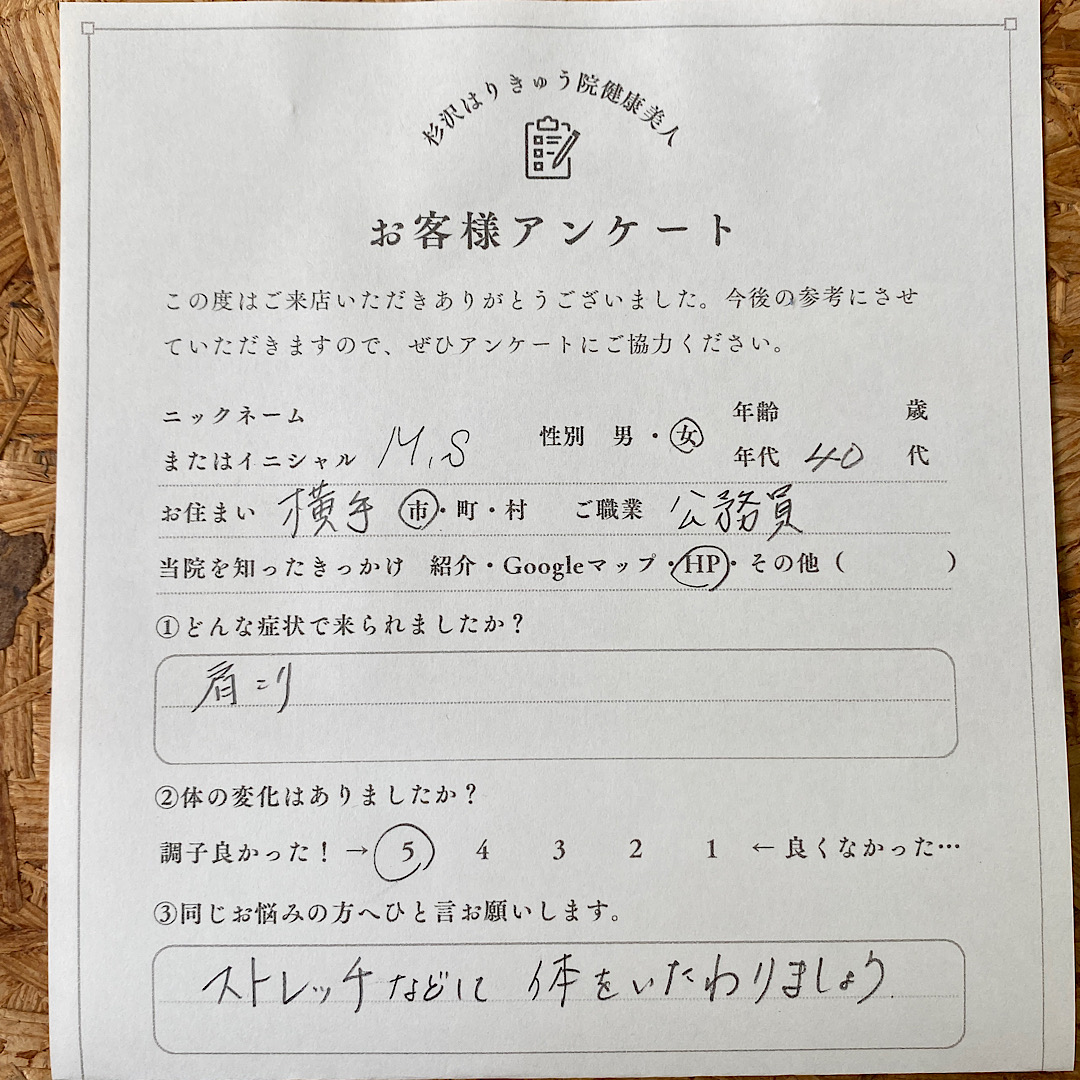 杉沢はりきゅう院健康美人
お客様アンケート
この度はご来店いただきありがとうございました。今後の参考にさせ
ていただきますので、ぜひアンケートにご協力ください。
ニックネーム
またはイニシャル M.S 性別 男・女 年齢 歳
年代 40 代
お住まい 横手 市・町・村 ご職業 公務員
当院を知ったきっかけ 紹介・Googleマップ・HP・その他( )
①どんな症状で来られましたか?
肩こり
②体の変化はありましたか?
調子良かった!→ 5 4 3 2 1 ←良くなかった…
③同じお悩みの方へひと言お願いします。
ストレッチなどして 体をいたわりましょう